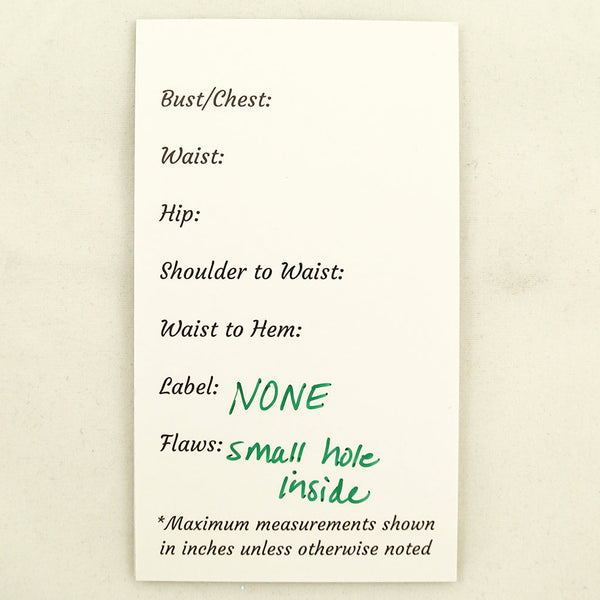 Bust/Chest:
Waist:
Hip:
Shoulder to Waist:
Waist to Hem:
Label: NONE
Flaws: small hole
inside
*Maximum measurements shown
in inches unless otherwise noted